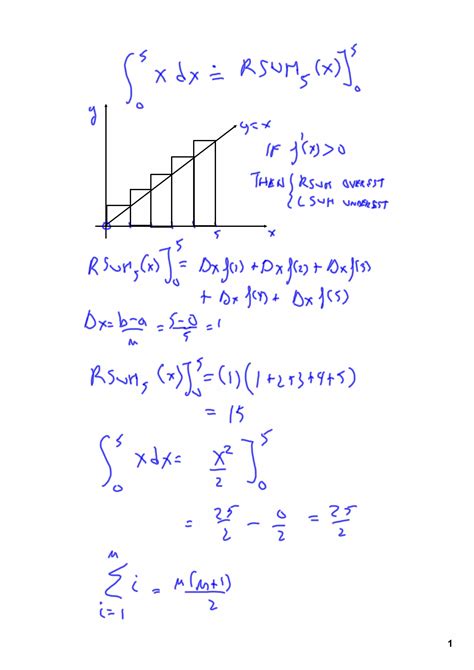 ∫₀⁵ x dx ≐ RSUM₅(x)]₀⁵
y
y=x
IF f'(x)>0
THEN { RSUM OVEREST
{ LSUM UNDEREST
5 x
RSUM₅(x)]₀⁵ = Dx f(1) + Dx f(2) + Dx f(3)
+ Dx f(4) + Dx f(5)
Dx = b-a/n = 5-0/5 = 1
RSUM₅(x)]₀⁵ = (1)(1+2+3+4+5)
= 15
∫₀⁵ x dx = x²/2]₀⁵
= 25/2 - 0/2 = 25/2
∑ᵢ₌₁ⁿ i = n(n+1)/2
1